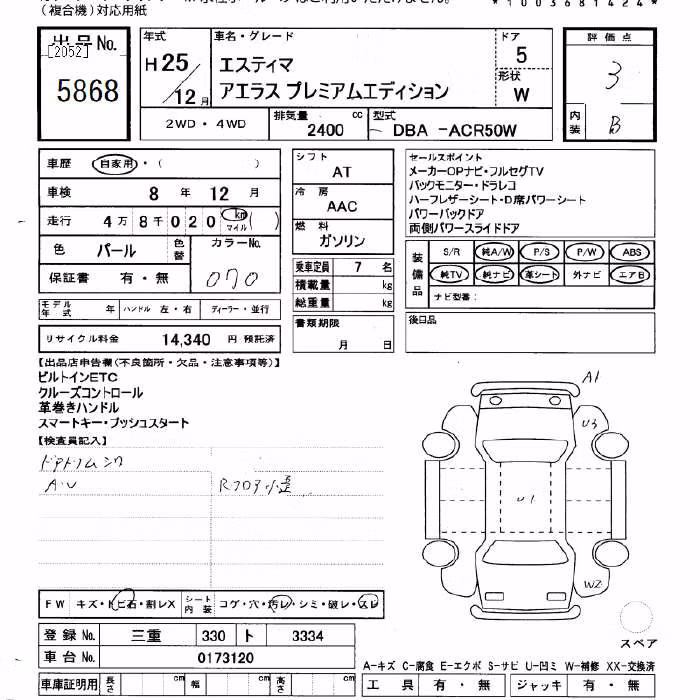 （複合機）対応用紙
*1003681424*
出品No.
[2052]
5868
年式
H25/12月
車名・グレード
エスティマ
アエラス プレミアムエディション
ドア
5
形状
W
評価点
3
内装
B
2WD・4WD
排気量
2400 cc
型式
DBA -ACR50W
車歴 自家用・（ ）
車検 8 年 12 月
走行 4万8千020 km マイル ( )
色 パール
色替
カラーNo.
070
保証書 有・無
シフト
AT
冷房
AAC
燃料
ガソリン
乗車定員 7 名
積載量 kg
総重量 kg
セールスポイント
メーカーOPナビ・フルセグTV
バックモニター・ドラレコ
ハーフレザーシート・D席パワーシート
パワーバックドア
両側パワースライドドア
装備品
S/R 純A/W P/S P/W ABS
純TV 純ナビ 革シート 外ナビ エアB
ナビ型番：
モデル年式 年 ハンドル 左・右 ディーラー・並行
リサイクル料金 14,340 円 預託済
書類期限
月 日
後日品
【出品店申告欄(不良箇所・欠品・注意事項等)】
ビルトインETC
クルーズコントロール
革巻きハンドル
スマートキー・プッシュスタート
【検査員記入】
A・U
Rフロア小歪
A1
U3
U1
W2
スペア
FW キズ・トビ石・割レX
シート内装 コゲ・穴・汚レ・シミ・破レ・スレ
登録No. 三重 330 ト 3334
車台No. 0173120
車庫証明用 長さ cm 幅 cm 高さ cm
A-キズ C-腐食 E-エクボ S-サビ U-凹ミ W-補修 XX-交換済
工具 有・無 ジャッキ 有・無